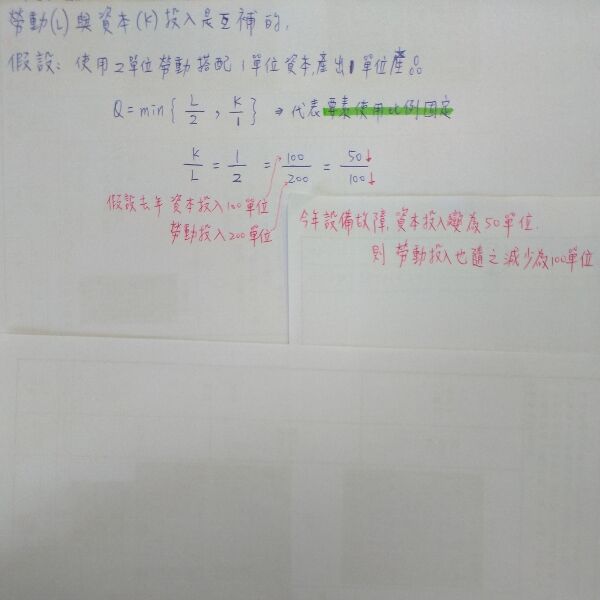 勞動(L)與資本(K)投入是互補的,
假設: 使用2單位勞動搭配1單位資本,產出1單位產品
Q=min{ L/2 , K/1 } → 代表要素使用比例固定
K/L = 1/2 = 100/200 = 50↓/100↓
假設去年資本投入100單位
勞動投入200單位
今年設備故障,資本投入變為50單位.
則 勞動投入也隨之減少為100單位